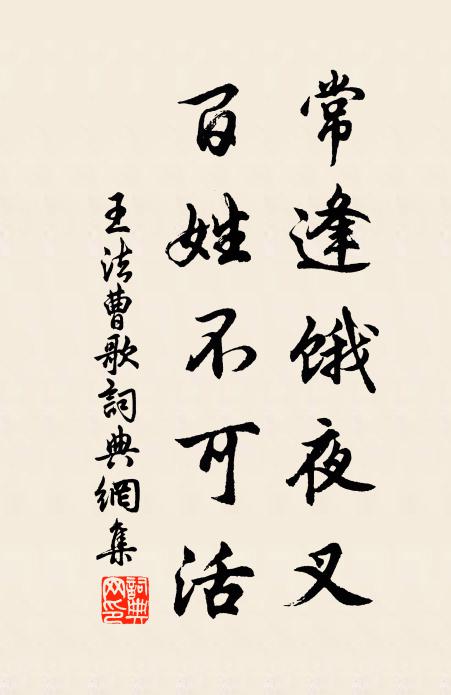 常逢餓夜叉
百姓不可活
王法曹歌詞典網集
詞典網印